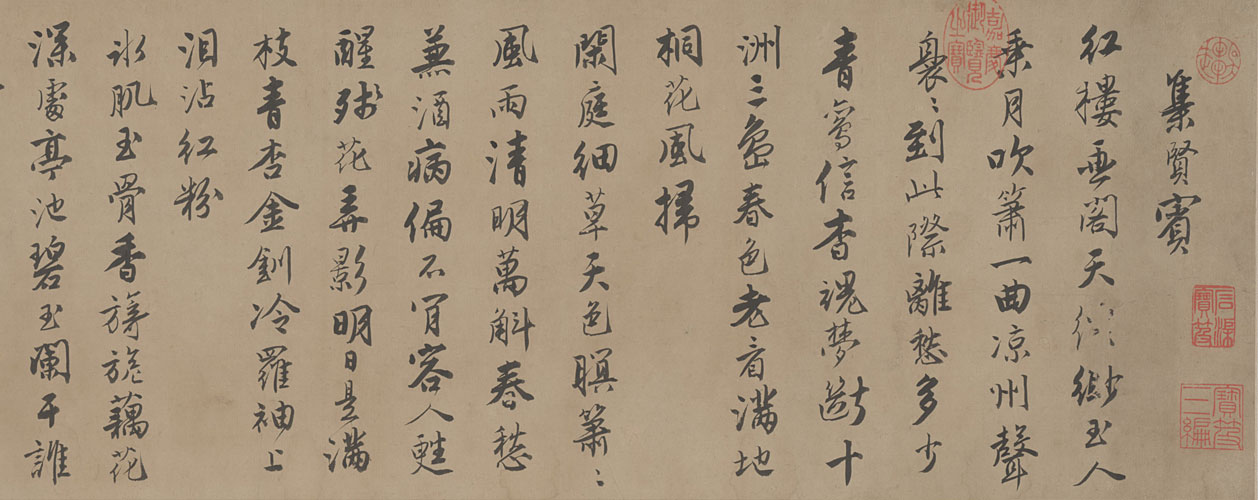 集賢賓
紅樓畫閣天緲玉人
乘月吹簫一曲凉州聲
裊〻到此際離愁多少
青鸞信杳魂夢斷十
洲三島春色老看滿地
桐花風掃
閑庭細草天色暝簫〻
風雨清明萬斛春愁
兼酒病偏不肯容人甦
醒殘花弄影明日是滿
枝青杏金釧冷羅袖上
泪沾紅粉
冰肌玉骨香旖旎藕花
深處亭池碧玉闌干誰
嘉慶御覽之寶
石渠寶笈
寶笈三編